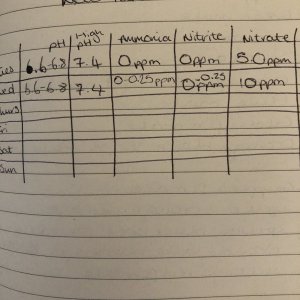 pH High pH Ammonia Nitrite Nitrate
ues 6.6-6.8 7.4 0ppm 0ppm 5.0ppm
ed 6.6-6.8 7.4 0-0.25ppm 0-0.25ppm 10ppm
hurs
ri
at
Sun